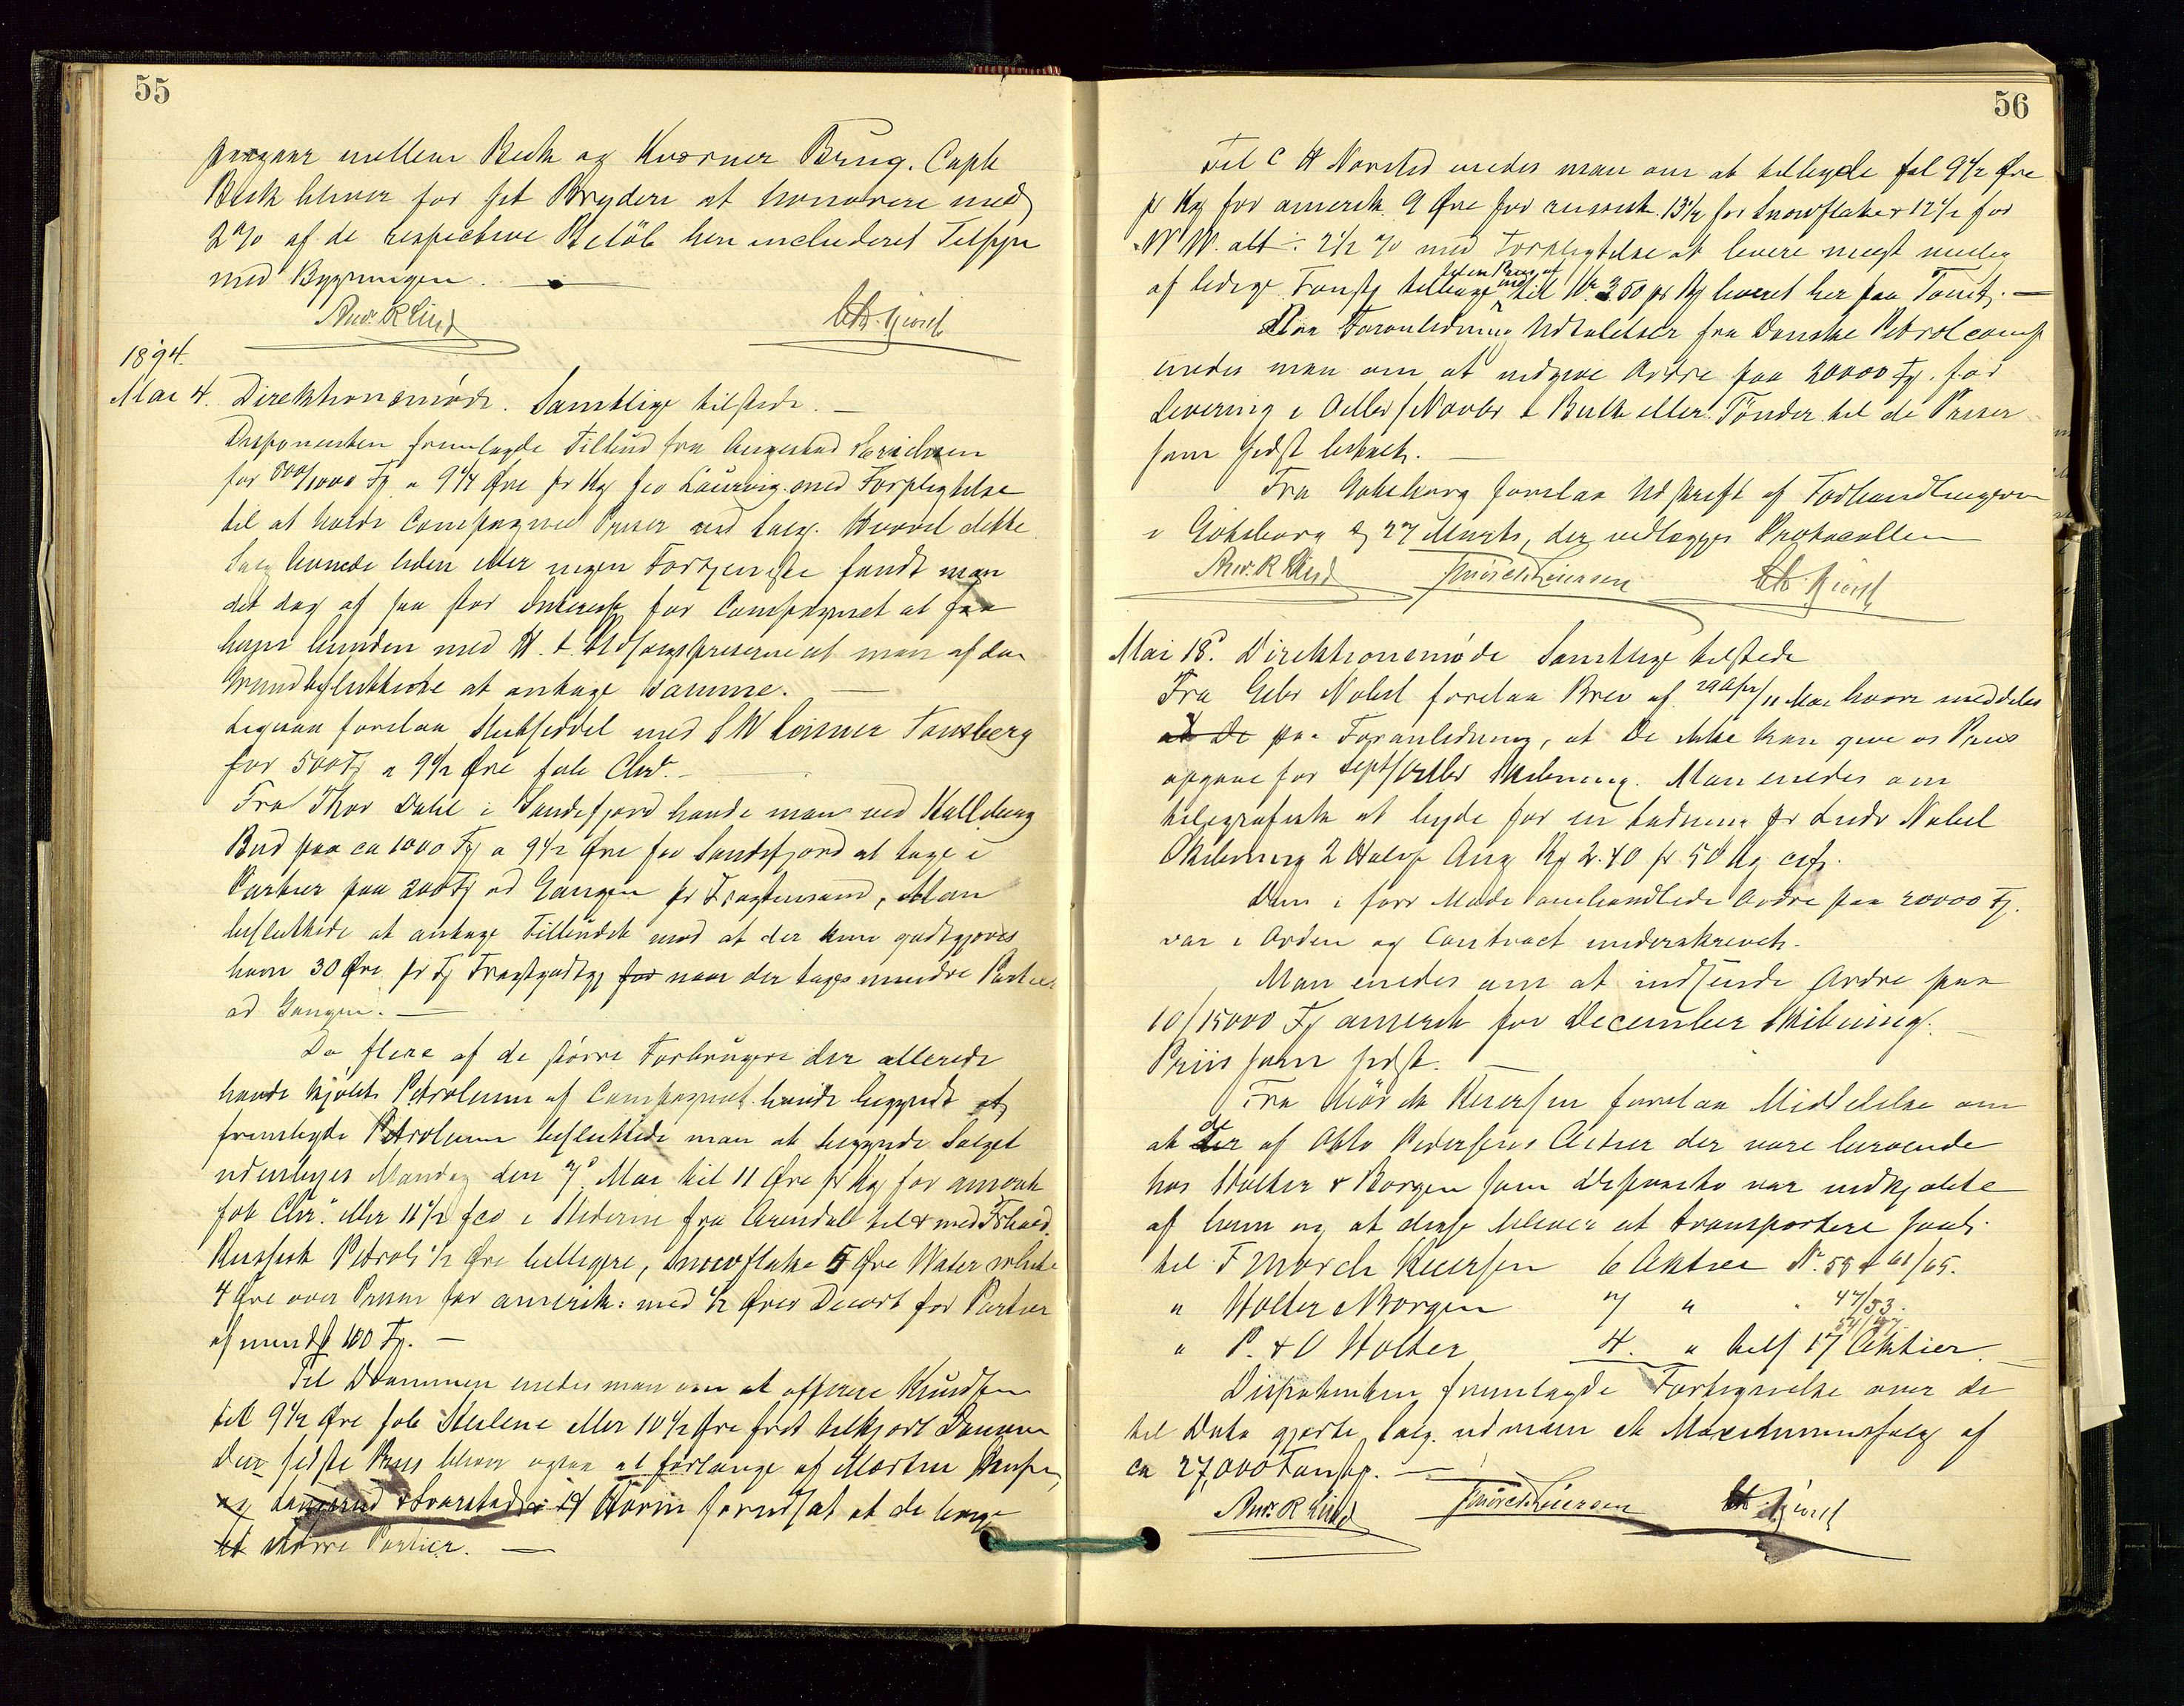 55
paagaar mellem Beck og Kværner Brug. Capt
Beck bliver for sit Bryderi at honorere med
2% af de respective Beløb heri includeret Tilsyn
med Bygningen. —
Andr. R Lind
1894.
Mai 4. Direktionsmøde. Samtlige tilstede. —
Disponenten fremlagde Tilbud fra
for 500/1000 Fg a 9 1/4 Øre pr Kg fco Laurvig med Forpligtelse
til at holde Compagniets Priser ved Salg. Hvorvel dette
Salg levnede liden eller ingen Fortjeneste fandt man
det dog af saa stor Interesse for Compagniet at faa
hans bunden med H. t. Udsalgspriserne at man af den
Grund besluttede at antage samme. —
Ligesaa forelaa Slutseddel med S W Tønsberg
for 500 Fg a 9 1/2 Øre fob Chra. —
Fra Thor Dahl i Sandefjord havde man ved Kallberg
Bud paa ca 1000 Fg a 9 1/2 Øre fco Sandefjord at tage i
Partier paa 200 Fg ad Gangen pr Fragtemand, Man
besluttede at antage Tilbudet mod at der kun godtgjøres
ham 30 Øre pr Fg Fragtgodtgj for naar der tages mindre Partier
ad Gangen. —
Da flere af de større Forbrugere der allerede
havde kjøbt Petroleum af Compagniet havde begyndt at
frembyde Petroleum besluttede man at begynde Salget
udenbyes Mandag den 7de Mai til 11 Øre pr Kg for amerik
fob Chra. eller 11 1/2 fco i Stederne fra Arendal til & med Frhald.
Russisk Petrol. 1/2 Øre billigere, Snowflake 5 Øre Water white
4 Øre over Prisen for amerik: med 1/2 Øres Decort for Partier
af mindst 100 Fg. —
Til Drammen enedes man om at offerere Knudsen
til 9 1/2 Øre fob Steilene eller 10 1/2 Øre frit tilkjørt Drammen
Den sidste Pris bliver ogsaa at forlange af Morten
og forudsat at de tage
et større Partier. —
56
Til C H Norsted enedes man om at tilbyde fob 9 1/2 Øre
pr Kg for amerik. 9 Øre for russisk. 13 1/2 for Snowflake & 12 1/2 for
W W. alt ÷ 2 1/2 % med Forpligtelse at levere mest mulig
af ledige Fustg tilbage til en Pris af til Kr. 3,50 pr leveret her paa Tomt. —
Paa Foranledning Udtalelser fra Danske Petrol comp
enedes man om at indgive Ordre paa 20000 Fg. for
Levering i Octbr/Novbr i Bulk eller Tønder til de Priser
som sidst betalt. —
Fra Gøteborg forelaa Udskrift af Forhandlingerne
i Gøteborg d 27 Marts, der vedlægges Protocollen
Andr. R Lind
Mai 18de. Direktionsmøde Samtlige tilstede
Fra Gebr Nobel forelaa Brev af 29 Apr/11 Mai hvori meddeles
at De paa Foranledning, at De ikke kan give os Pris
opgave for Sept/Octbr Skibning. Man enedes om
telegrafisk at byde for en Ladning pr Ludv Nobel
Skibning 2 Halvp Aug Kr 2.40 pr 50 Kg cif.
Den i forr Møde omhandlede Ordre paa 20000 Fg.
var i Orden og Contract underskrevet.
Man enedes om at indsende Ordre paa
10/15000 Fg amerik for December Skibning. —
Priis som sidst. —
Fra Mørch forelaa Meddelelse om
at de af Otto Pedersens Actier der vare beroende
hos Holter & Borgen som Depositum var indkjøbte
af ham og at disse bliver at transportere saal.
til F Mørch 6 Aktier No. 58 & 61/65.
" Holter & Borgen 7 " " 47/53.
" P. & O Holter 4. " 54/57. tils 17 Aktier. —
Disponenten fremlagde Fortegnelse over de
til Dato gjorte Salg udvisen et Maximumssalg af
ca 27,000 Fustg. —
Andr. R Lind